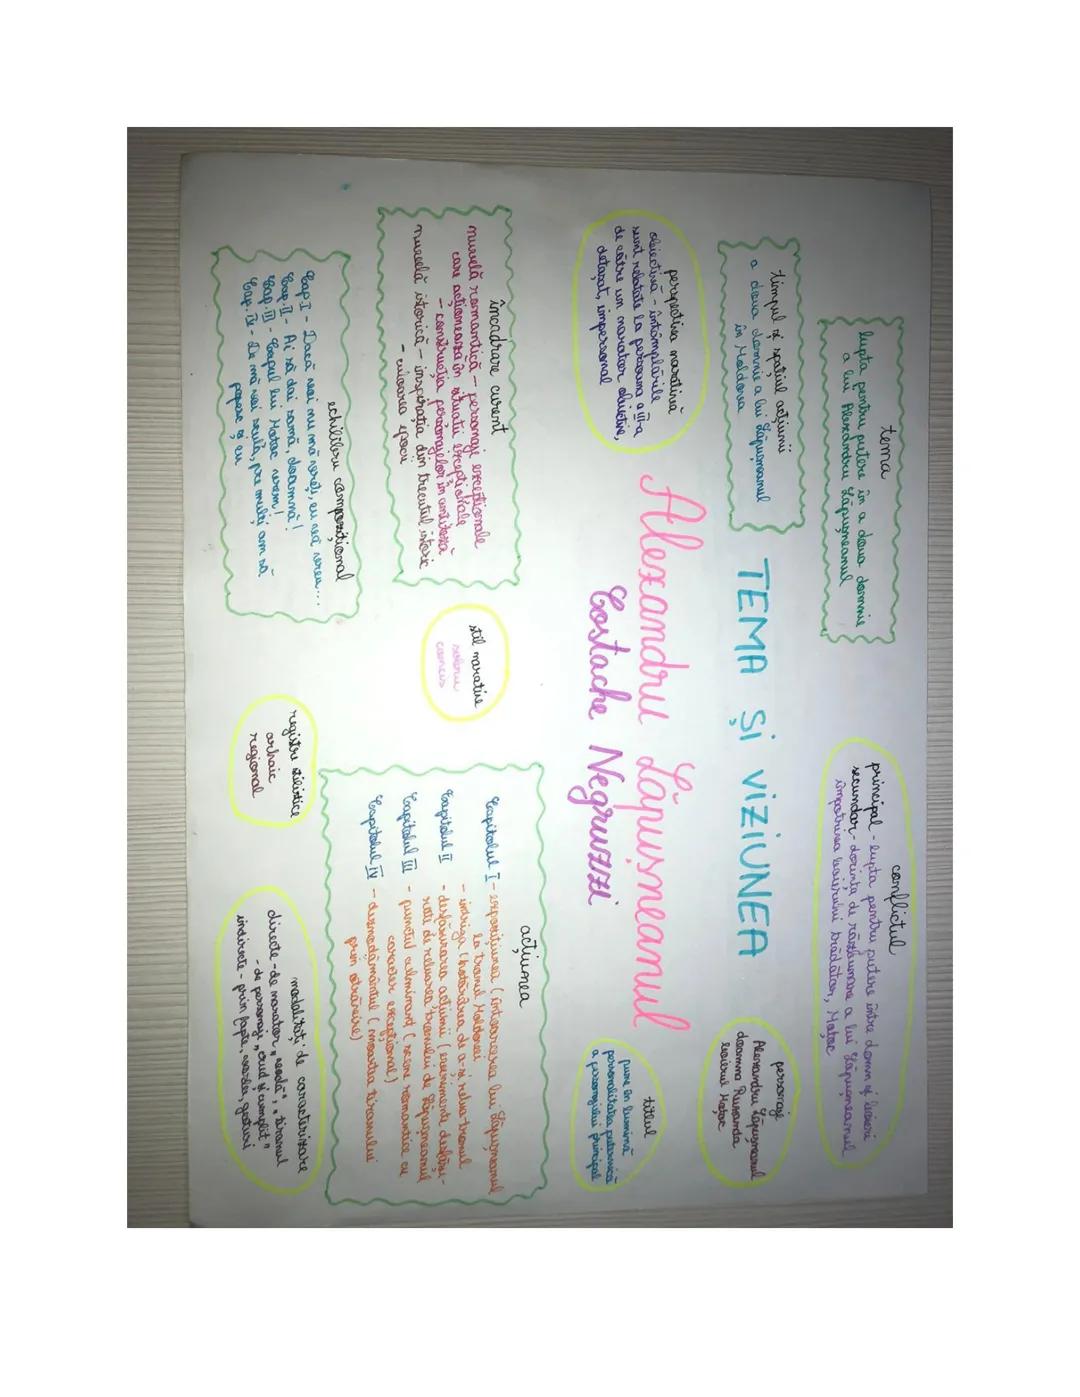 TEMA și VIZIUNEA
Alexandru Lăpușneanul
Costache Negruzzi
tema
lupta pentru putere în a doua domnie
a lui Alexandru Lăpușneanul
conflictul
principal - lupta pentru putere între domn și boieri
secundar - dorința de răzbunare a lui Lăpușneanul
împotriva boierului trădător, Moțoc
timpul și spațiul acțiunii
a doua domnie a lui Lăpușneanul
în Moldova
personaje
Alexandru Lăpușneanul
doamna Ruxanda
boierul Moțoc
perspectiva narativă
obiectivă - întâmplările
sunt relatate la persoana a III-a
de către un narator obiectiv,
detașat, impersonal
titlul
pune în lumină
personalitatea puternică
a personajului principal
încadrare curent
nuvelă romantică - personaje excepționale
care acționează în situații excepționale
- construcția personajelor în antiteză
nuvelă istorică - inspirația din trecutul istoric
- culoarea epocii
stil narativ
sobru
concis
acțiunea
Capitolul I - expozițiunea (întoarcerea lui Lăpușneanul
la tronul Moldovei)
- intriga (hotărârea de a-și relua tronul
Capitolul II - desfășurarea acțiunii (evenimente desfășu-
rate de reluarea tronului de Lăpușneanul
Capitolul III - punctul culminant (scene romantice cu
caracter excepțional)
Capitolul IV - deznodământul (moartea tiranului
prin otrăvire)
echilibru compozițional
Cap. I - Dacă voi nu mă vreți, eu vă vreu...
Cap. II - Ai să dai samă, doamnă!
Cap. III - Capul lui Moțoc vrem!
Cap. IV - De mă voi scula, pre mulți am să
popesc și eu
registre stilistice
arhaic
regional
modalități de caracterizare
directe - de narator „vodă”, „tiranul
- de personaje „crud și cumplit”
indirecte - prin fapte, vorbe, gesturi